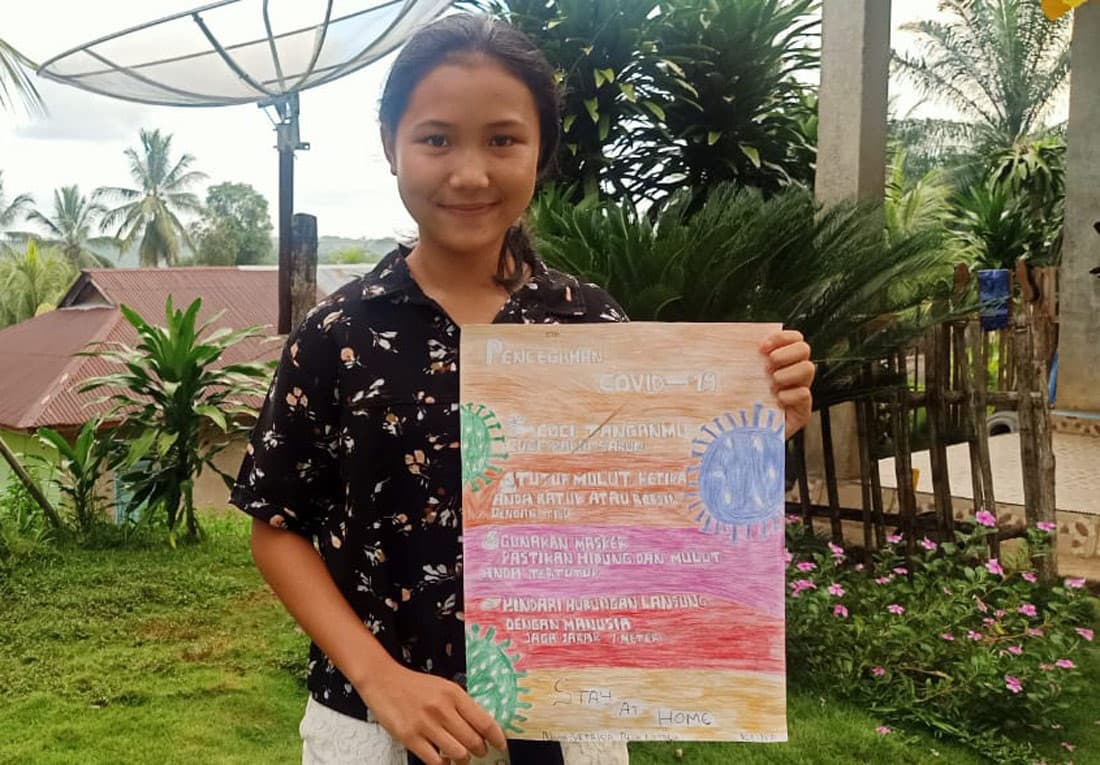 PENCEGAHAN
COVID-19
CUCI TANGANMU
TUTUP MULUT KETIKA
ANDA BATUK ATAU BERSIN
GUNAKAN MASKER
PASTIKAN HIDUNG DAN MULUT
ANDA TERTUTUP
HINDARI HUBUNGAN LANSUNG
DENGAN MANUSIA
JAGA JARAK 1 METER
STAY
AT
HOME